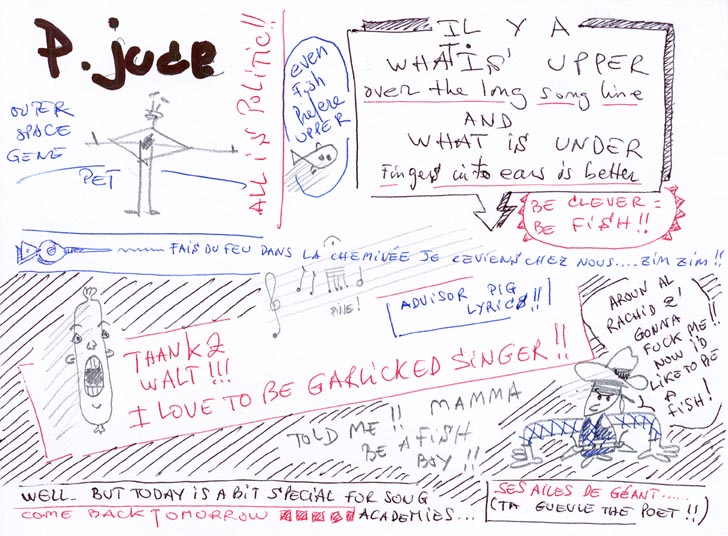 P. jude
OUTER
SPACE
GENE
PET
ALL IS POLITIC!!
even
Fish
Prefere
UPPER
IL Y A
WHAT IS' UPPER
over the long song line
AND
WHAT is UNDER
Fingers into ears is better
BE CLEVER =
BE FISH!!
FAIS DU FEU DANS LA CHEMINÉE JE REVIENS CHEZ NOUS.... ZIM ZIM!!
PINE!
ADVISOR PIG
LYRICS!!
THANKZ
WALT!!!
I LOVE TO BE GARLICKED SINGER!!
AROUN AL
RACHID Z'
GONNA
FUCK ME!!
NOW I'D
LIKE TO BE
A
FISH!
MAMMA
TOLD ME!!
BE A FISH
BOY!!
WELL.. BUT TODAY IS A BIT SPECIAL FOR SONG
COME BACK TOMORROW ACADEMIES...
SES AILES DE GÉANT......
(TA GUEULE THE POET!!)